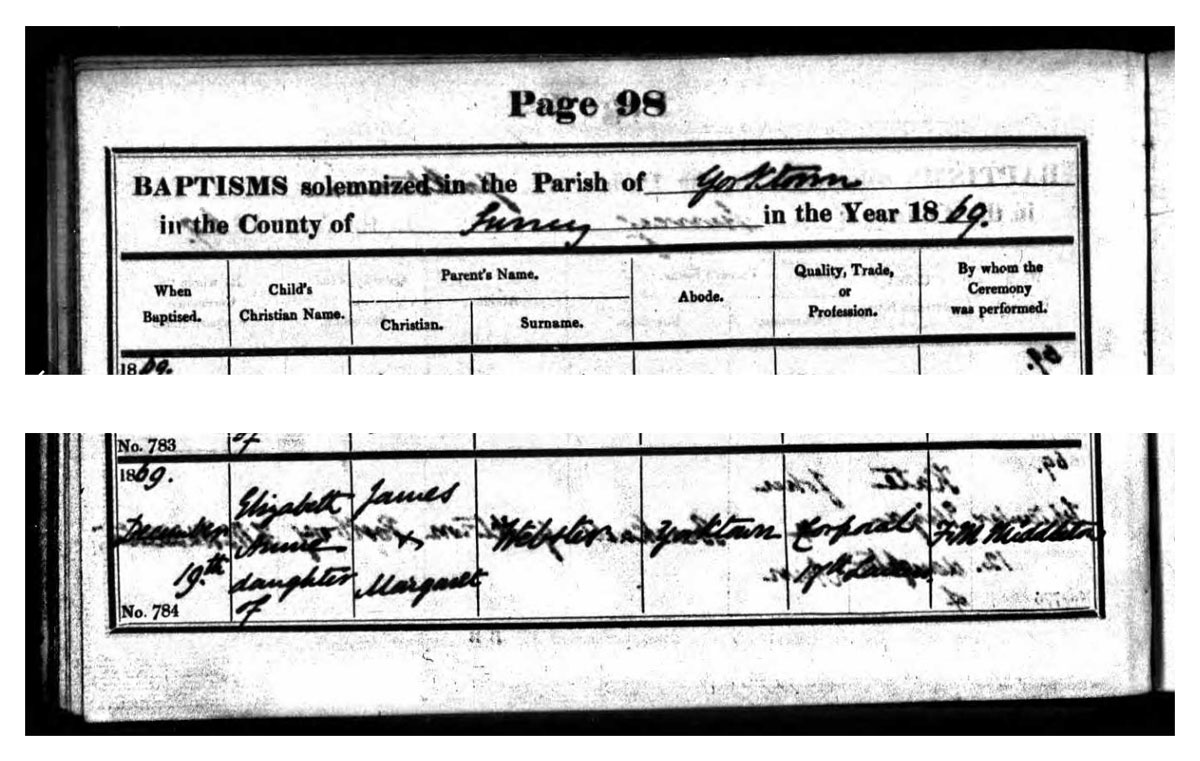 Page 98
BAPTISMS solemnized in the Parish of Yorktown
in the County of Surrey in the Year 1869.
When Baptised.
Child's Christian Name.
Parent's Name.
Christian.
Surname.
Abode.
Quality, Trade, or Profession.
By whom the Ceremony was performed.
1869.
No. 783
of
1869.
December
19.th
No. 784
Elizabeth
Annie
daughter
of
James
+
Margaret
Webster
Yorktown
Corporal
17th Lancers
F.M. Middleton